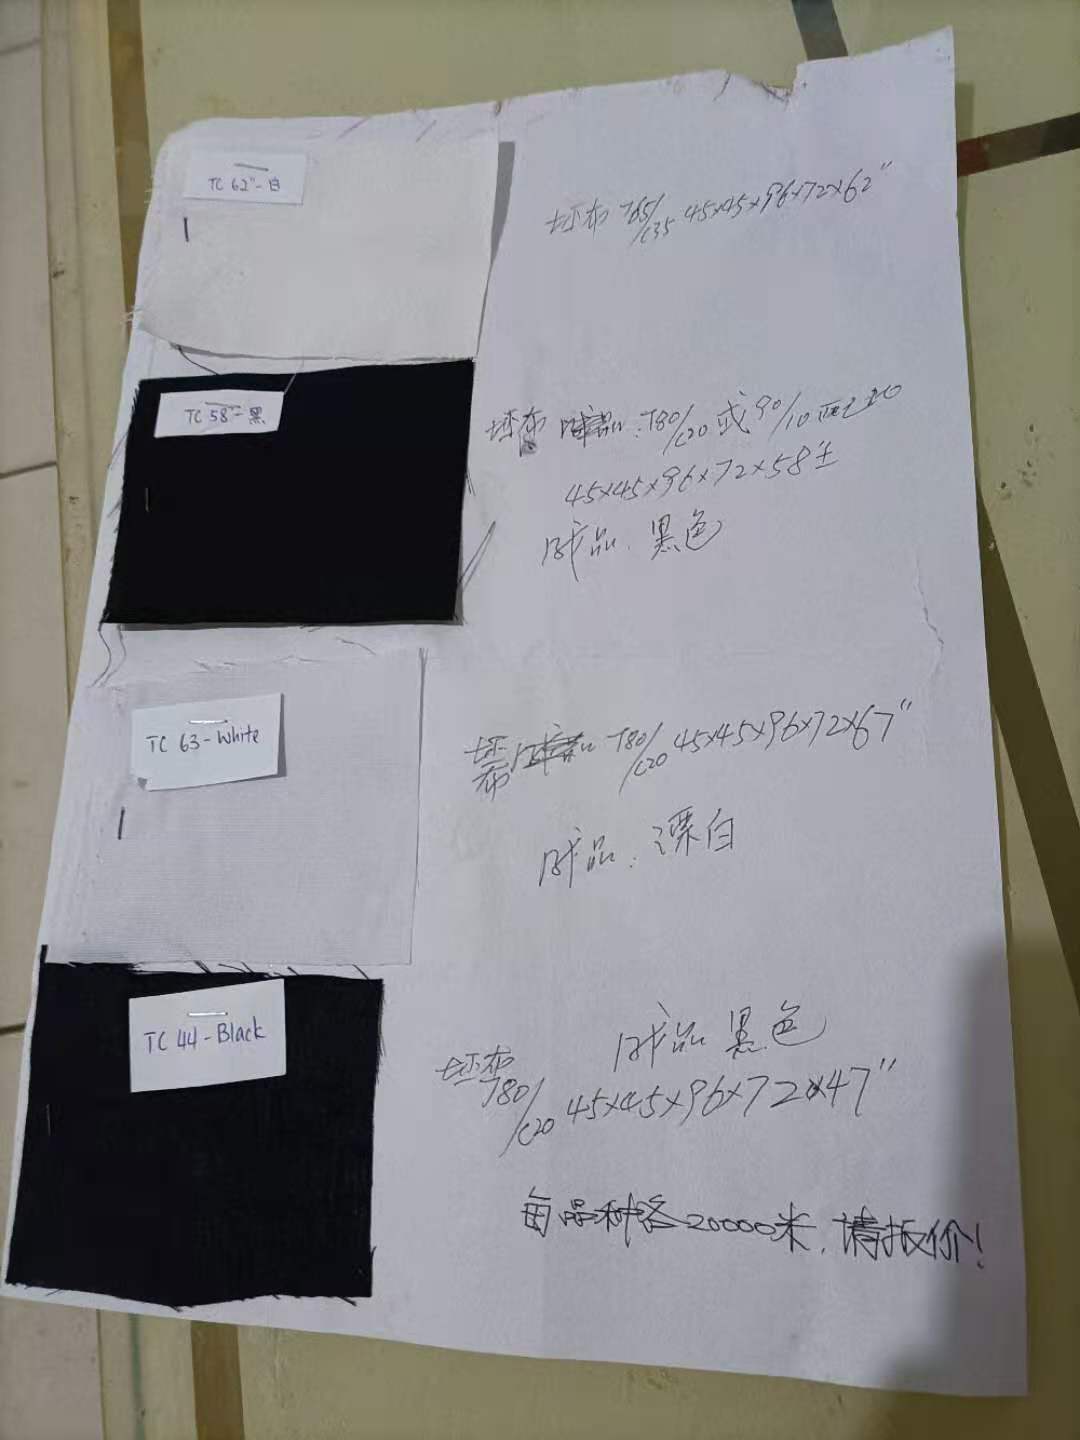 TC 62"-白
坯布 T65/C35 45x45x96x72x62"
TC 58"-黑
坯布 成品: T80/C20 或 90/10
45x45x96x72x58
成品: 黑色
TC 63-White
坯布 成品 T80/C20 45x45x96x72x67"
成品: 漂白
TC 44-Black
成品 黑色
坯布 T80/C20 45x45x96x72x47"
每品种各20000米, 请报价!